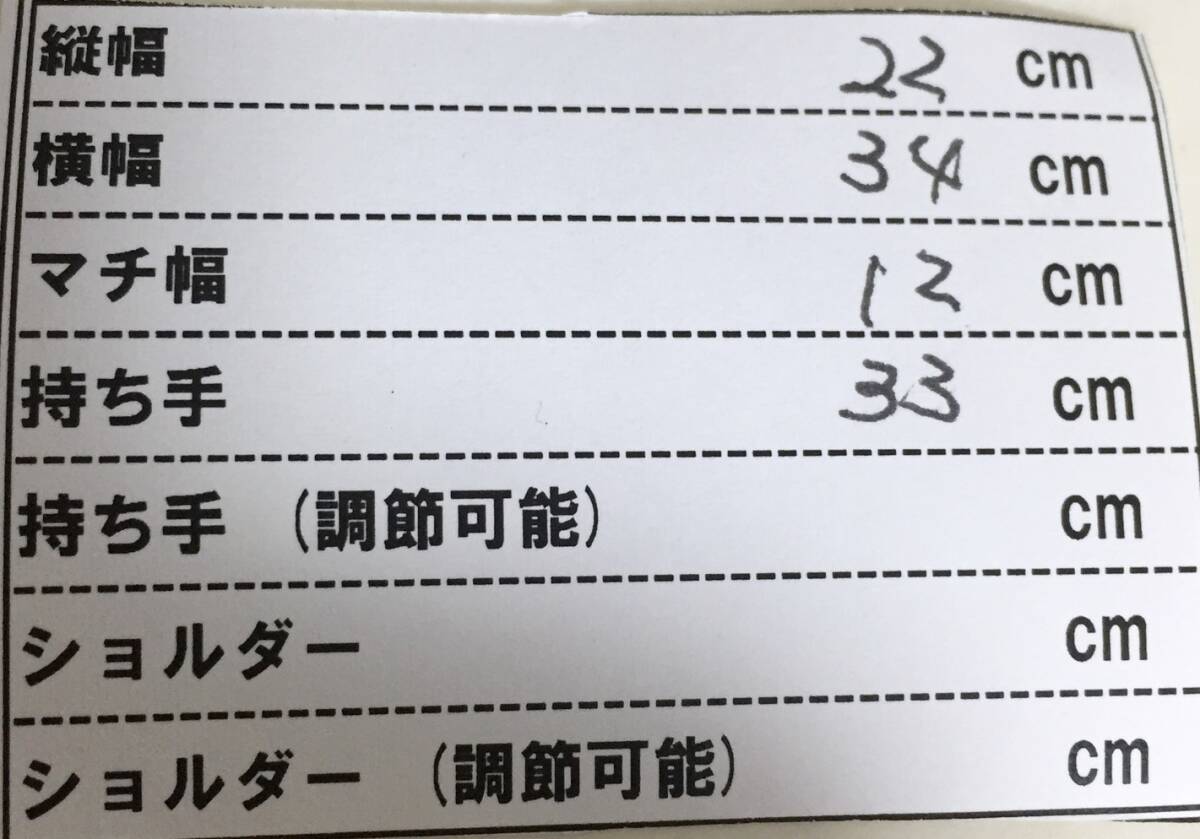 縦幅 22 cm
横幅 34 cm
マチ幅 12 cm
持ち手 33 cm
持ち手 (調節可能) cm
ショルダー cm
ショルダー (調節可能) cm